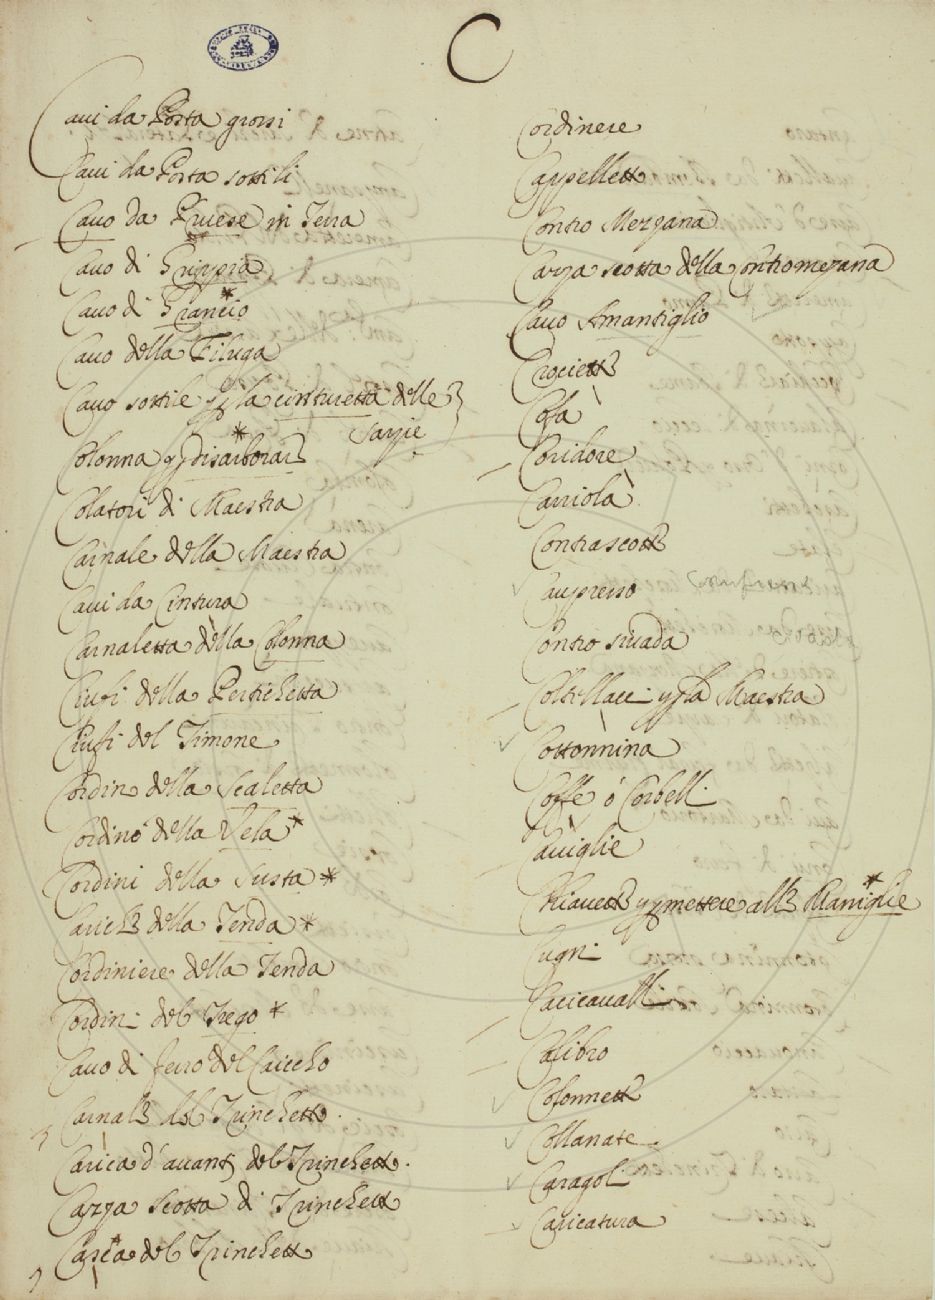 C
Caui da Posta grossi
Caui da Posta sottili
Cauo da Pruese in Terra
Cauo di Grippia
Cauo di Grancio
Cauo della Filuga
Cauo sottile p la cinturetta delle
Sarzie
Colonna p disarborare
Colatori di Maestra
Carnale della Maestra
Caui da Cintura
Carnaletta della Colonna
Ciufi della Pertichetta
Ciufi del Timone
Cordin della Scaletta
Cordino della Vela
Cordini della Susta
Cariche della Tenda
Cordiniere della Tenda
Cordini del Trego
Cauo di ferro del Caiccho
Carnale del Trinchetto
Carica d'auanti del Trinchetto
Cazza Scotta di Trinchetto
Carica del Trinchetto
Cordinere
Cappellette
Contro Mezzana
Cazza scotta della Contromezana
Cauo Amantiglio
Crociette
Cofa
Coridore
Carriola
Contrascotte
Caupresso
Contro struada
Coltellacci p la Maestra
Cottonnina
Coffe ó Corbelli
Cauiglie
Chiauette p mettere alle Maniglie
Cugni
Cacicaualli
Calibro
Colonnette
Collanate
Caragoli
Caricatura